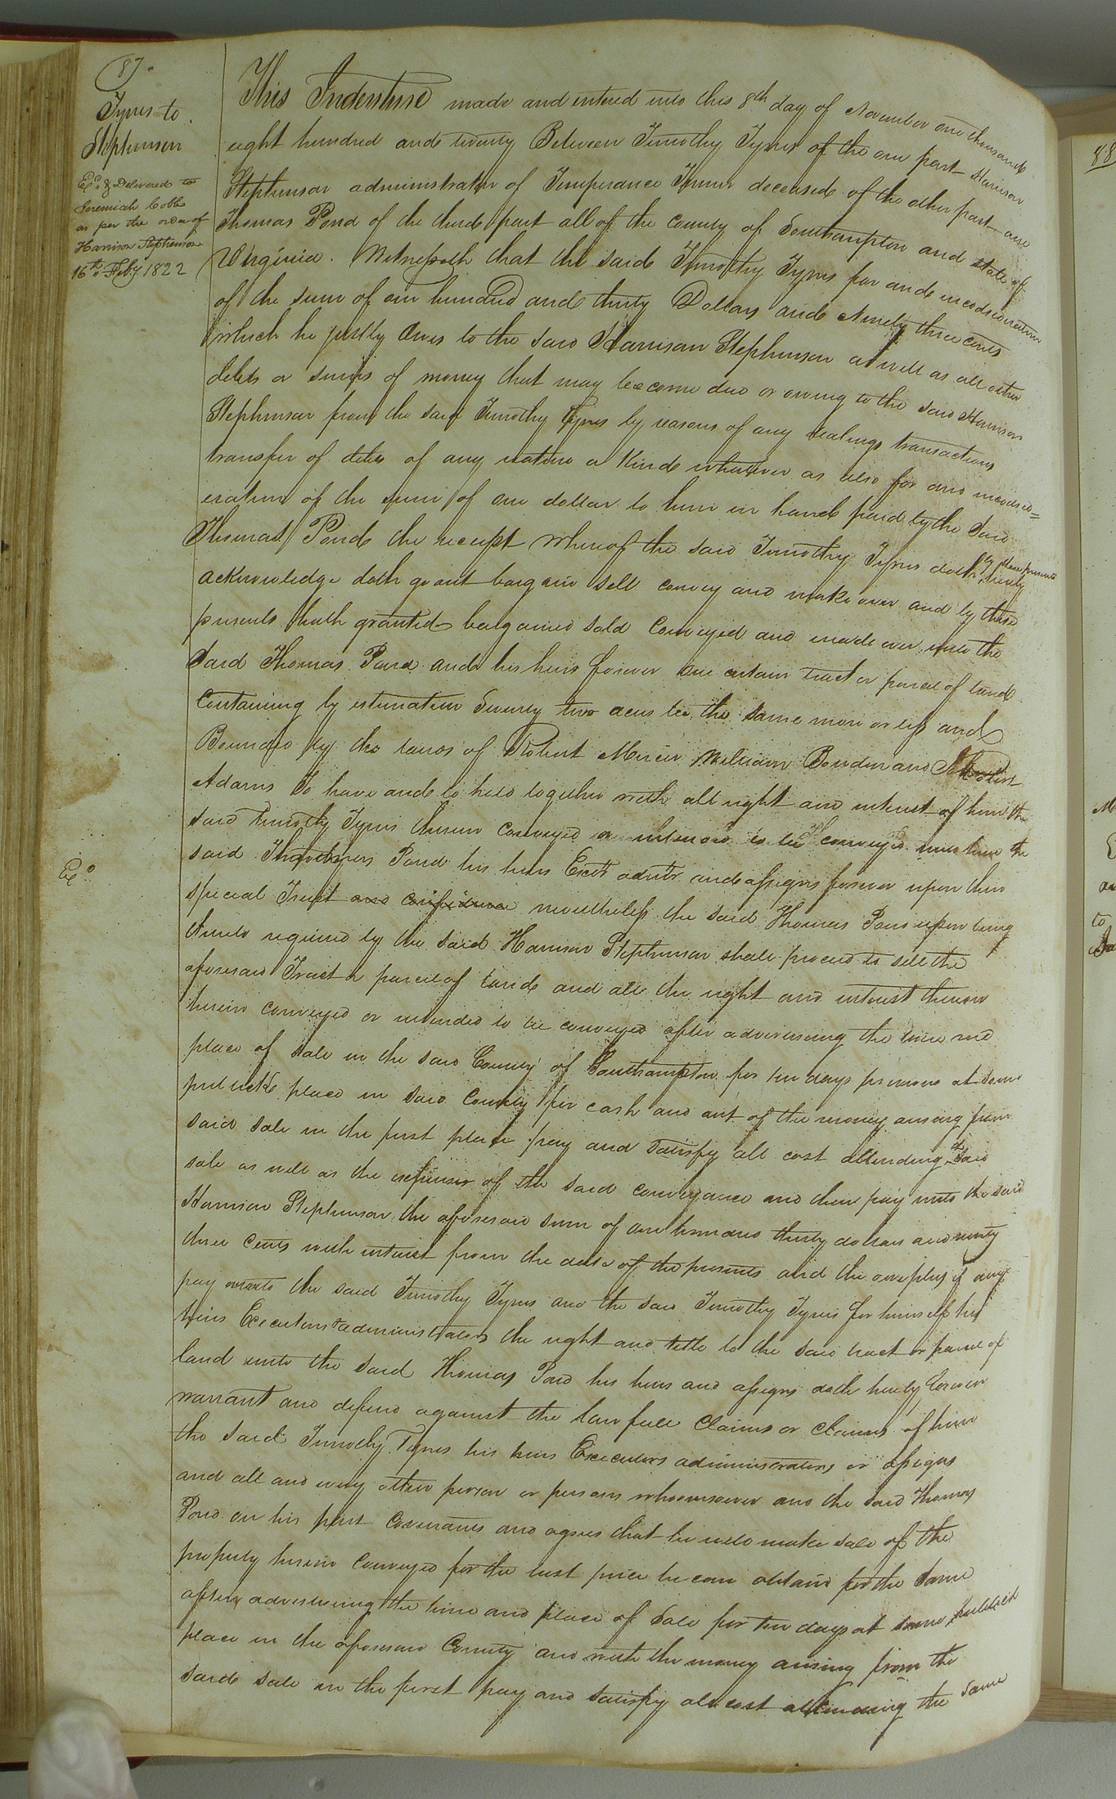 87.
Tyns to
Stephenson
Exd. & Delivered to
Jeremiah Cobb
as per the order of
Harrison Stephenson
16th Feby 1822
This Indenture made and entered into this 8th day of November one thousand
eight hundred and twenty Between Timothy Tynes of the one part Harrison
Stephenson administrator of Temperance Turner deceased of the other part and
Thomas Pond of the third part all of the County of Southampton and state of
Virginia. Witnesseth that the said Timothy Tynes for and in consideration
of the sum of one hundred and thirty Dollars and Ninety three cents
which he justly Owes to the said Harrison Stephenson as well as all other
debts or sums of money that may become due or owing to the said Harrison
Stephenson from the said Timothy Tynes by reasons of any dealings transactions
transfer of debts of any nature or kind whatever as also for and in consid=
eration of the sum of one dollar to him in hand paid by the said
Thomas Pond the receipt whereof the said Timothy Tynes doth by these presents hereby
acknowledge doth grant bargain sell convey and make over and by these
presents hath granted bargained sold conveyed and made over unto the
said Thomas Pond and his heirs forever one certain tract or parcel of land
Containing by estimation Seventy two acres be the same more or less and
Bounded by the lands of Robert Mercer William Bowden and
Adams to have and to hold together with all right and interest of him the
said Timothy Tynes therein conveyed or intended to be conveyed unto him the
said Thomas Pond his heirs Exors admrs and assigns forever upon this
special Trust and confidence nevertheless the said Thomas Pond upon being
thereto required by the said Harrison Stephenson shall proceed to sell the
aforesaid Tract or parcel of land and all the right and interest therein
herein conveyed or intended to be conveyed after advertising the time and
Ex.
place of sale in the said County of Southampton for ten days previous at some
publick place in said County for cash and out of the money arising from
said sale in the first place pay and satisfy all cost attending the said
sale as well as the expenses of the said conveyance and then pay unto the said
Harrison Stephenson the aforesaid sum of one hundred thirty dollars and ninety
three Cents with interest from the date of the presents and the overplus if any
pay over to the said Timothy Tynes and the said Timothy Tynes for himself his
heirs Executors & administrators the right and title to the said tract or parcel of
land unto the said Thomas Pond his heirs and assigns doth hereby forever
warrant and defend against the lawfull Claims or claims of him
the said Timothy Tynes his heirs Executors administrators or assigns
and all and every other person or persons whomsoever and the said Thomas
Pond on his part Covenants and agrees that he will make sale of the
property herein Conveyed for the best price he can obtain for the same
after advertising the time and place of Sale for ten days at some publick
place in the aforesaid County and with the money arising from the
said sale in the first pay and satisfy all cost attending the same